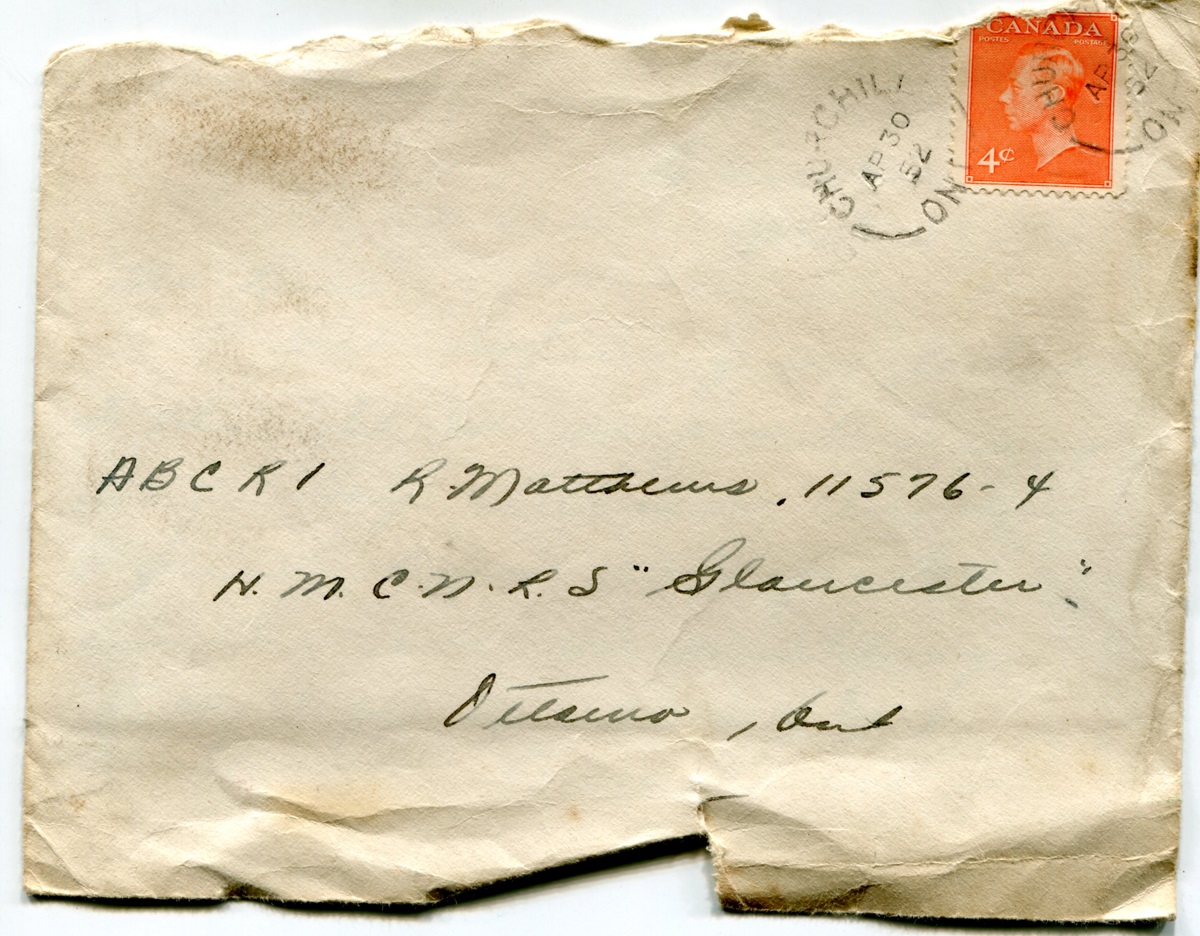 CANADA
POSTES POSTAGE
4¢
CHURCHILL
AP 30
52
ON
CHUR
AP
52
ON
ABCR1 R. Matthews, 11576-4
H.M.C.N.R.S "Gloucester"
Ottawa, Ont